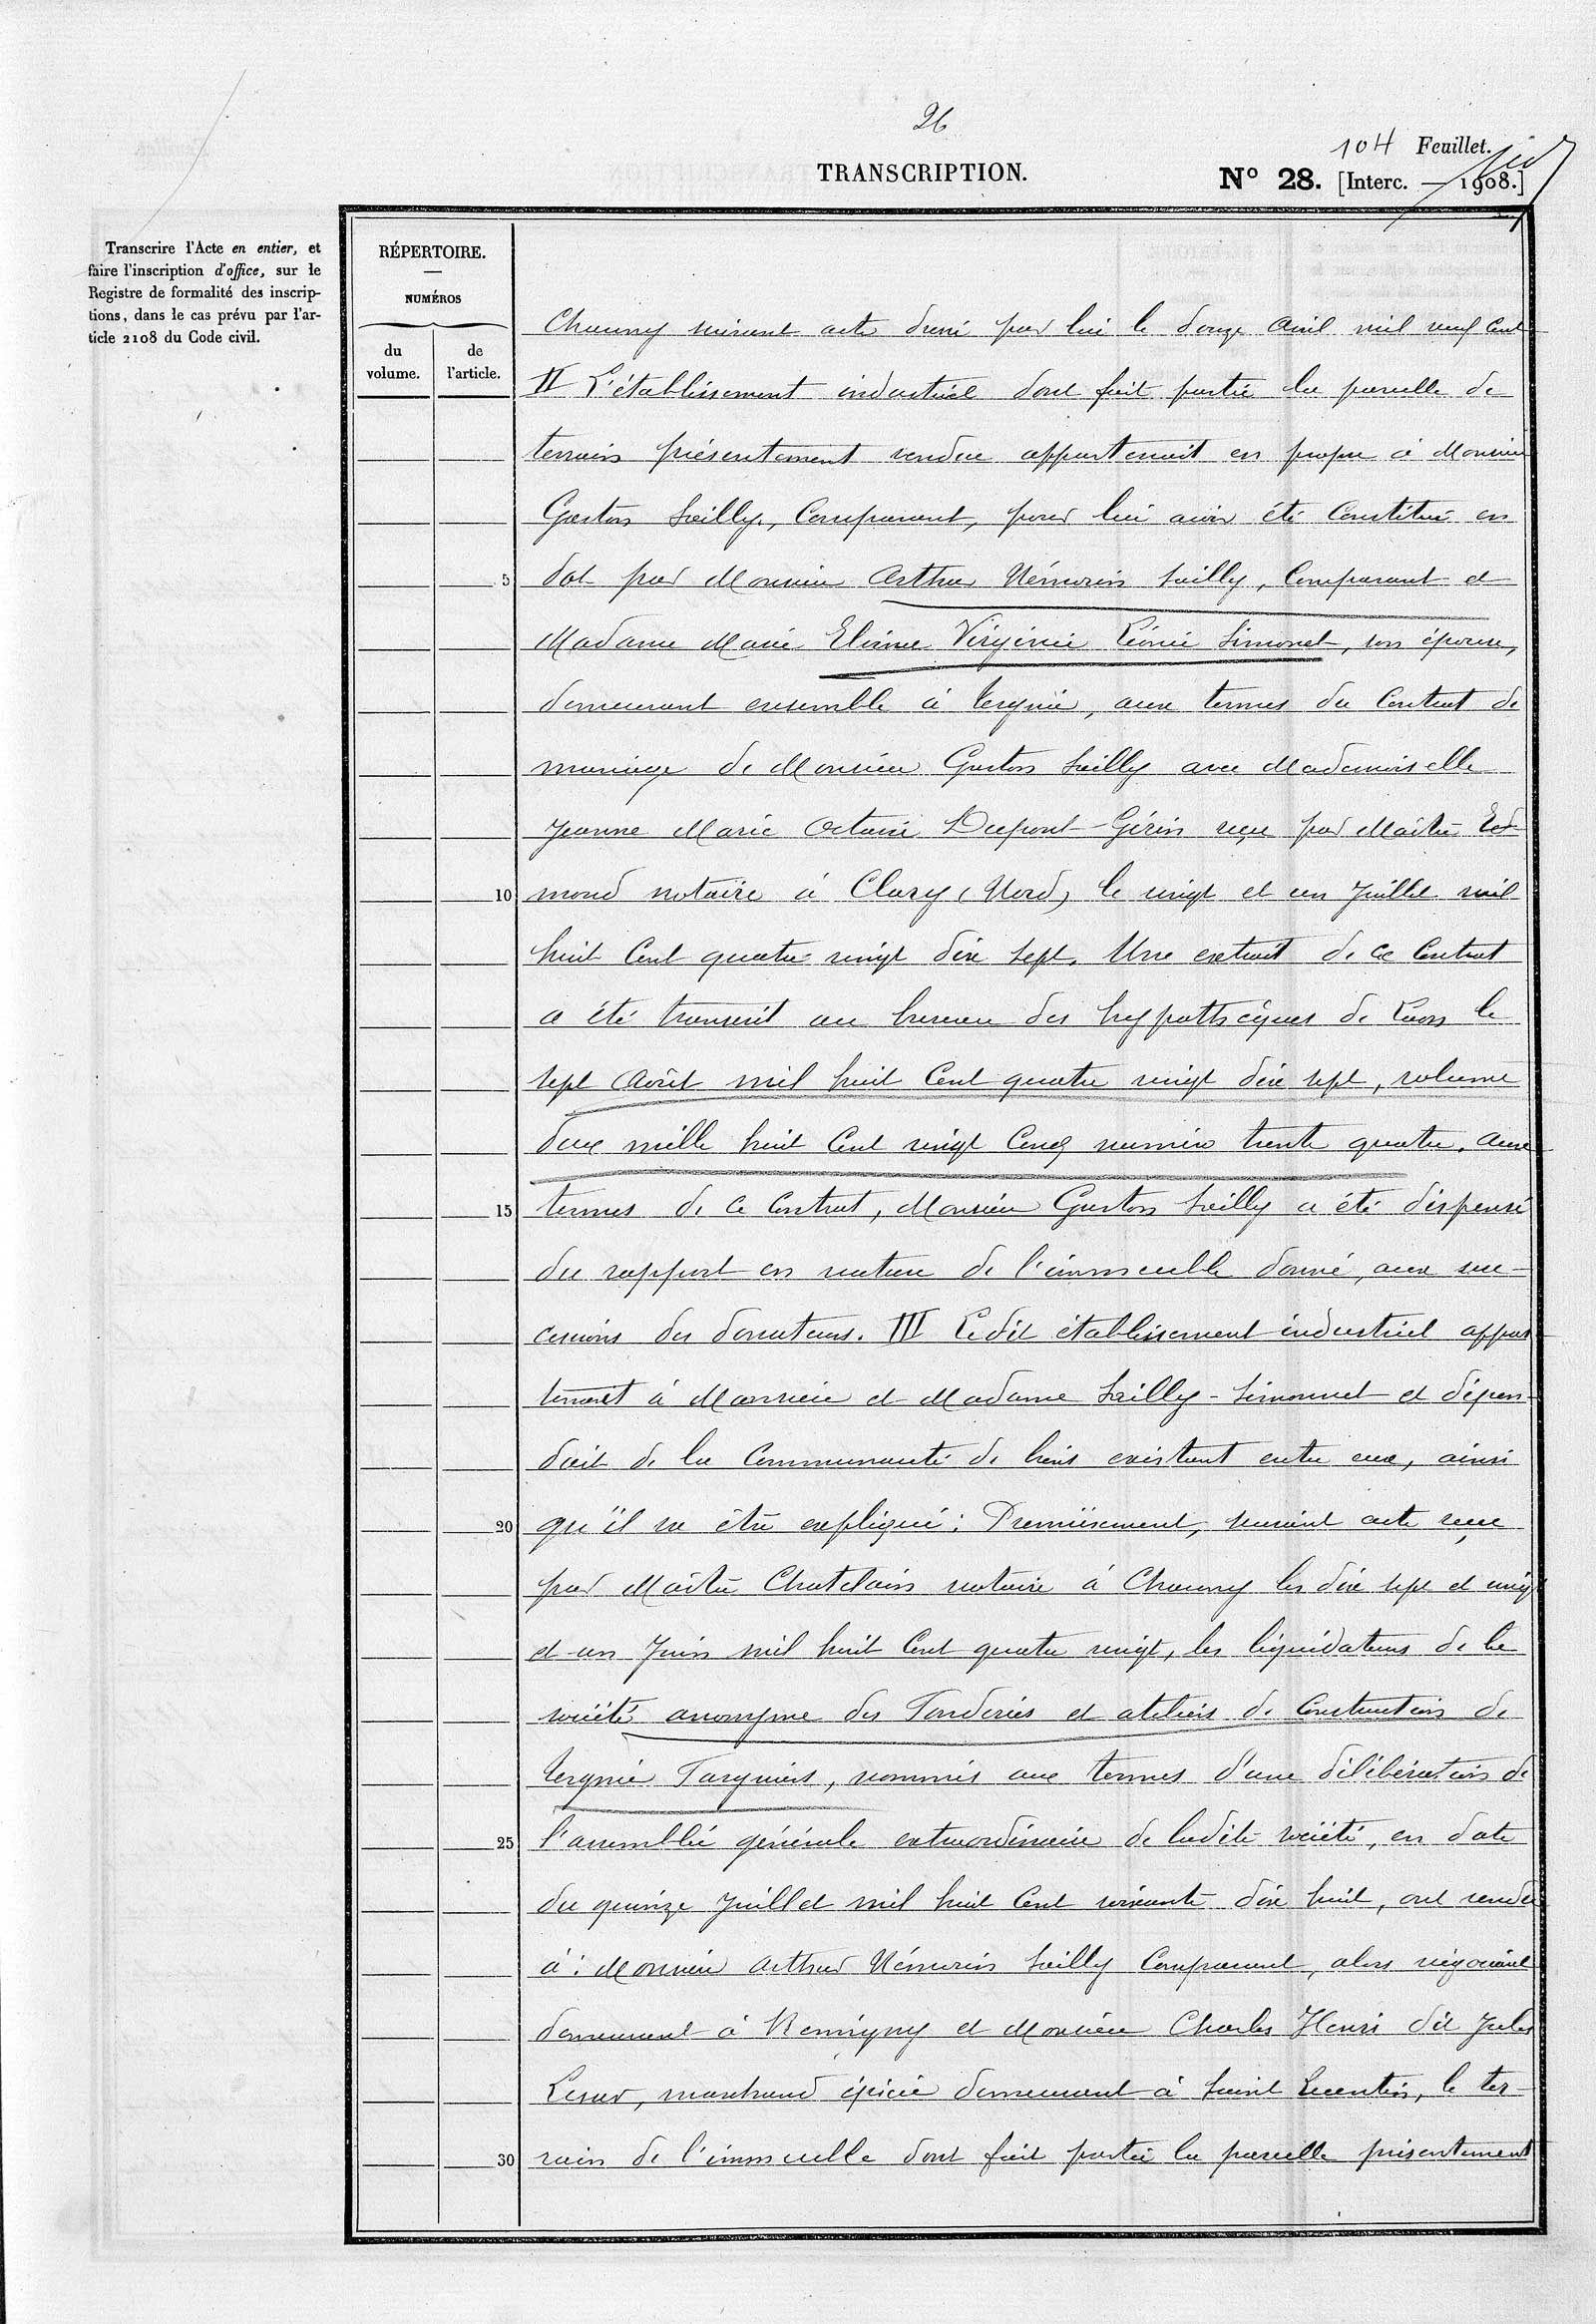 26
104 Feuillet.
TRANSCRIPTION.
N° 28. [Interc. — 1908.]
Transcrire l'Acte en entier, et
faire l'inscription d'office, sur le
Registre de formalité des inscrip-
tions, dans le cas prévu par l'ar-
ticle 2108 du Code civil.
RÉPERTOIRE.
NUMÉROS
du volume.
de l'article.
Chauny suivant acte dressé par lui le douze avril mil neuf cent
II L'établissement industriel dont fait partie la parcelle de
terrain présentement vendue appartenait en propre à Monsieur
Gaston Sailly, comparant, pour lui avoir été constitué en
5 dot par Monsieur Arthur Némorin Sailly, comparant et
Madame Marie Elvina Virginie Léonie Simonet, son épouse,
demeurant ensemble à Tergnier, aux termes du contrat de
mariage de Monsieur Gaston Sailly avec Mademoiselle
Jeanne Marie Octavie Dupont-Gérin reçu par Maître Ed-
10 mond notaire à Clary (Nord) le vingt et un Juillet mil
huit cent quatre vingt dix sept. Une extrait de ce contrat
a été transcrit au bureau des hypothèques de Laon le
sept Août mil huit cent quatre vingt dix sept, volume
deux mille huit cent vingt cinq numéro trente quatre. aux
15 termes de ce contrat, Monsieur Gaston Sailly a été dispensé
du rapport en nature de l'immeuble donné, aux suc-
cessions des donateurs. III Ledit établissement industriel appar
tenait à Monsieur et Madame Sailly-Simonnet et dépen-
dait de la communauté de biens existant entre eux, ainsi
20 qu'il va être expliqué: Premièrement, suivant acte reçu
par Maître Chatelain notaire à Chauny les dix sept et vingt
et un Juin mil huit cent quatre vingt, les liquidateurs de la
société anonyme des Fonderies et ateliers de construction de
Tergnier Fargniers, nommés aux termes d'une délibération de
25 l'assemblée générale extraordinaire de ladite société, en date
du quinze Juillet mil huit cent soixante dix huit, ont vendu
à: Monsieur Arthur Némorin Sailly comparant, alors négociant
demeurant à Remigny et Monsieur Charles Henri dit Jules
Lesur, marchand épicier demeurant à Saint Quentin, le ter-
30 rain de l'immeuble dont fait partie la parcelle présentement